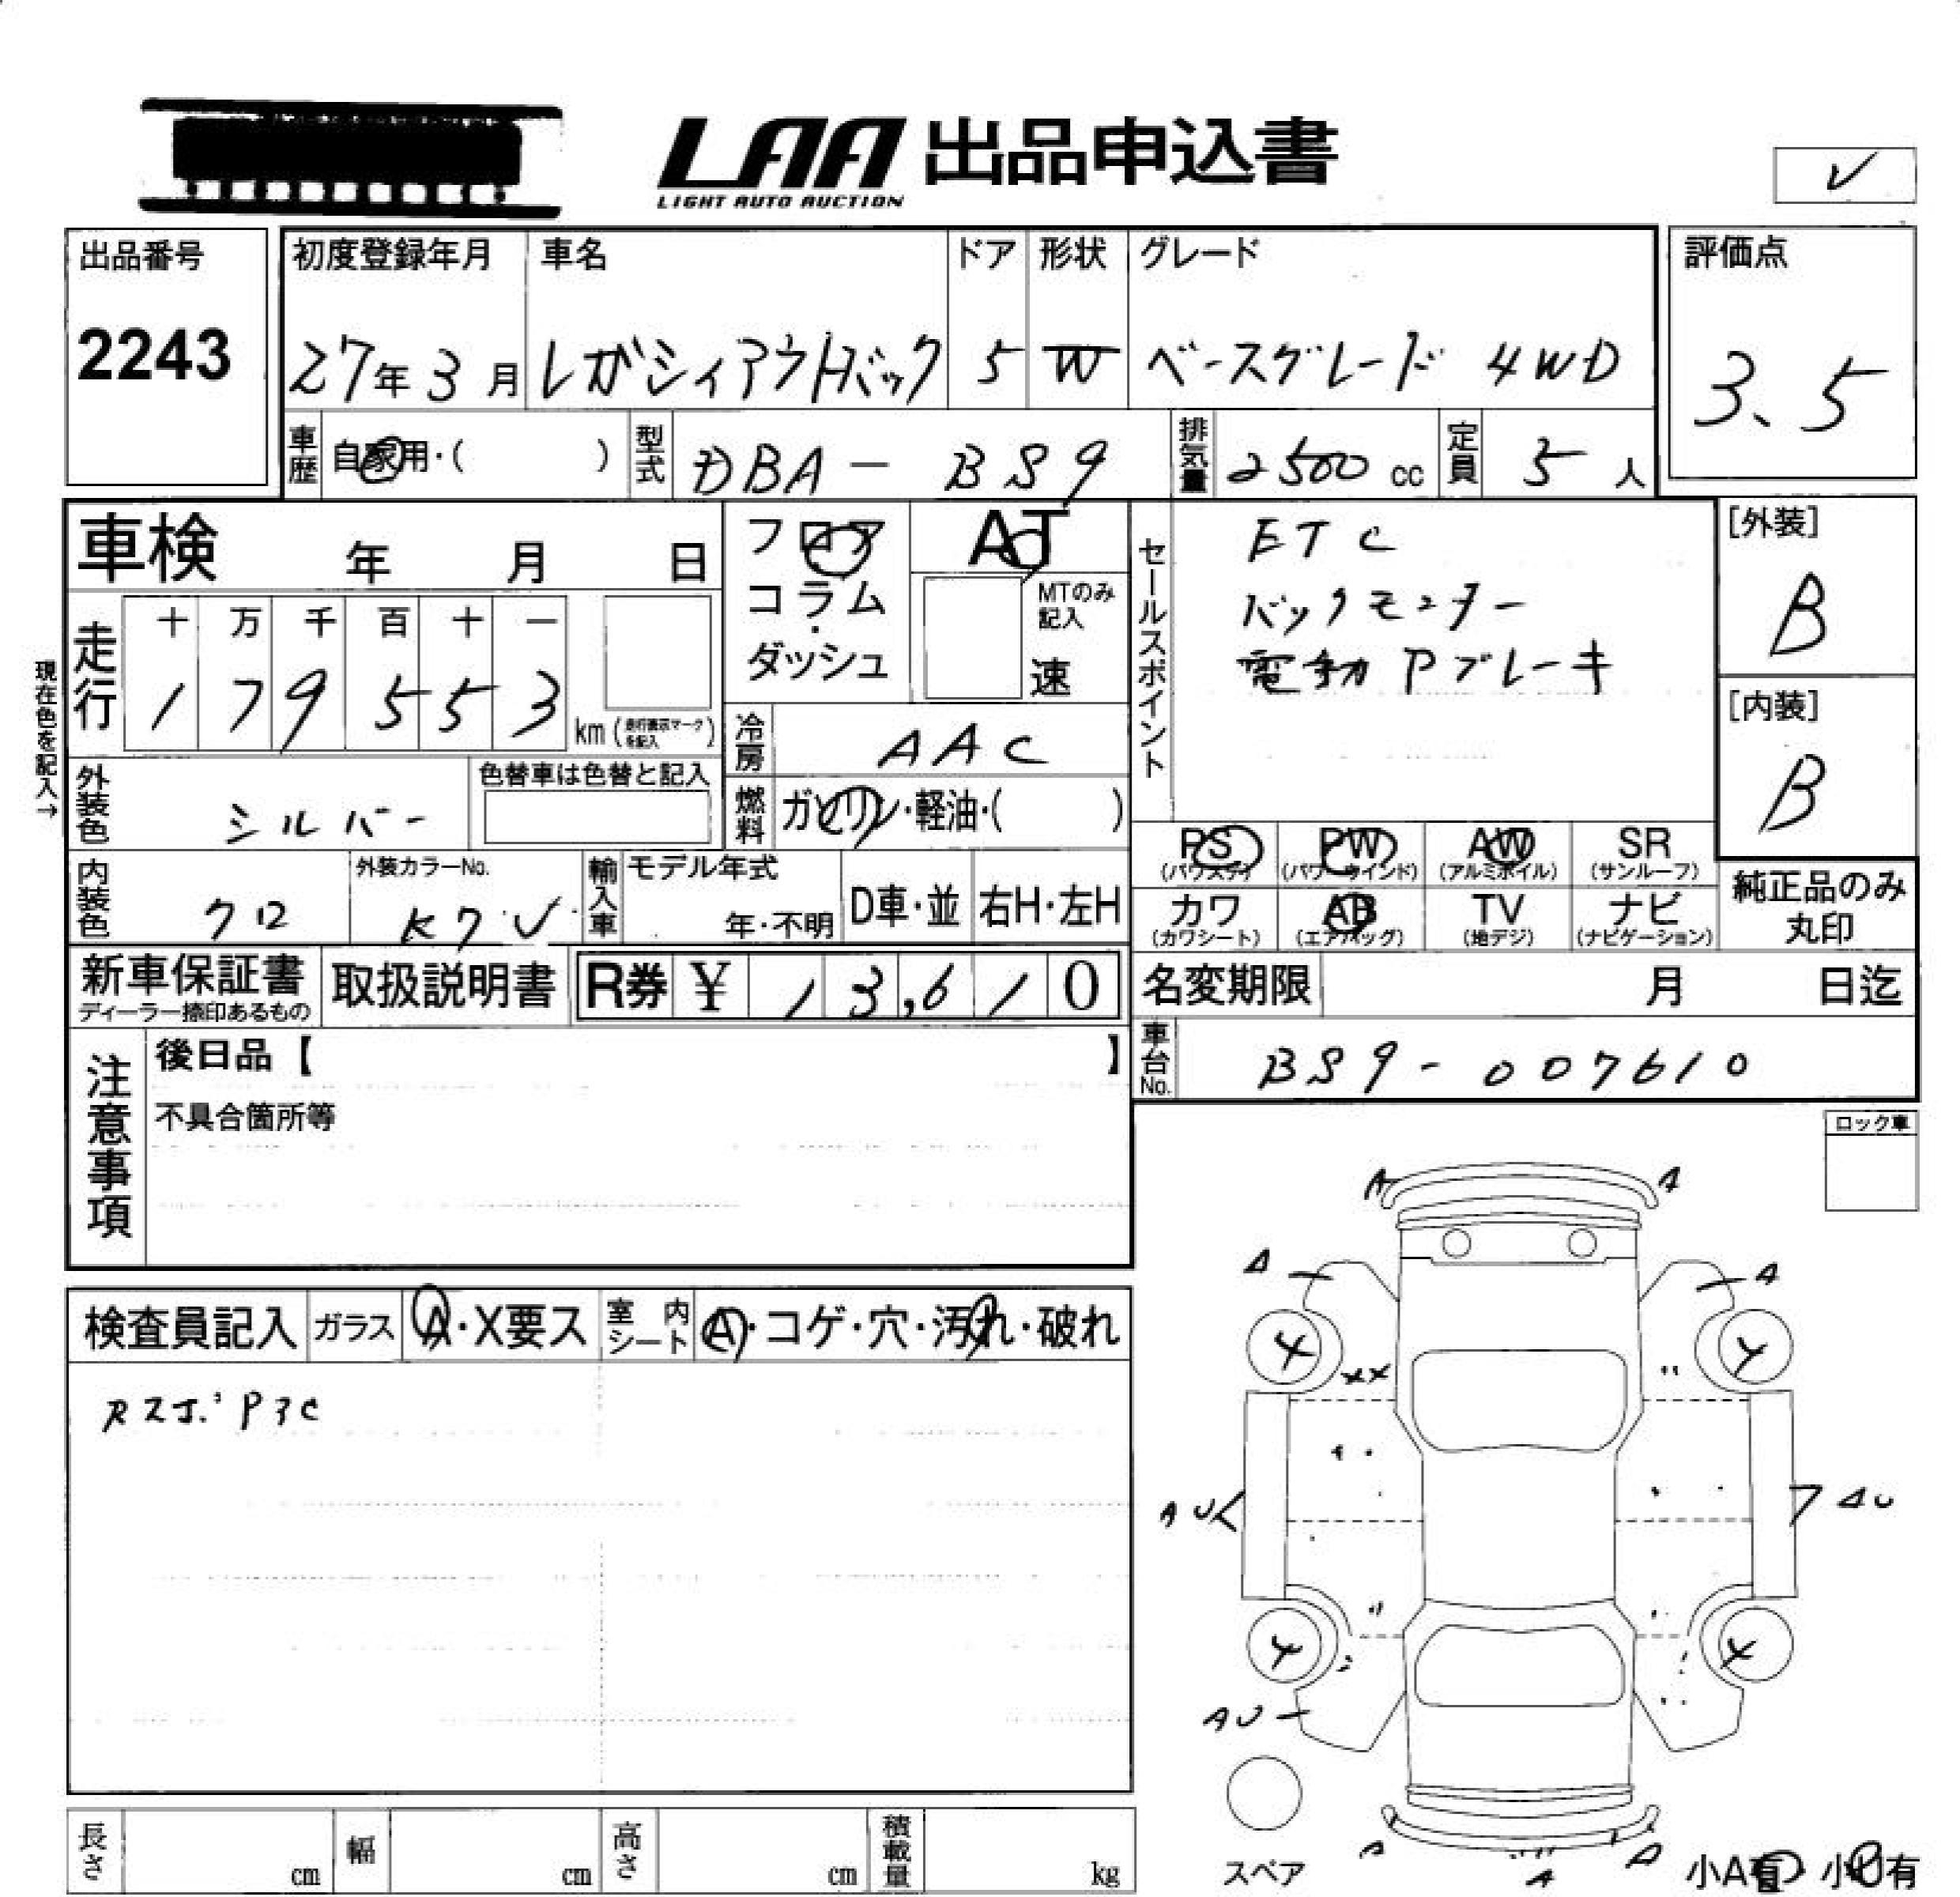 LAA 出品申込書
LIGHT AUTO AUCTION
出品番号
2243
初度登録年月
27年3月
車名
レガシィアウトバック
ドア
5
形状
W
グレード
ベースグレード 4WD
評価点
3.5
車歴
自家用・( )
型式
DBA - BS9
排気量
2500 cc
定員
5 人
車検 年 月 日
フロア
コラム・
ダッシュ
AT
MTのみ
記入
速
セールスポイント
ETC
バックモニター
電動Pブレーキ
[外装]
B
[内装]
B
現在色を記入→
走行
十 万 千 百 十 一
1 7 9 5 5 3
km (走行表示マークを記入)
冷房
AAC
外装色
シルバー
色替車は色替と記入
燃料
ガソリン・軽油・( )
PS (パワステ)
PW (パワーウインド)
AW (アルミホイル)
SR (サンルーフ)
カワ (カワシート)
AB (エアバッグ)
TV (地デジ)
ナビ (ナビゲーション)
純正品のみ
丸印
内装色
クロ
外装カラーNo.
輸入車
モデル年式
年・不明
D車・並
右H・左H
新車保証書
ディーラー捺印あるもの
取扱説明書
R券 ¥ 13,610
名変期限 月 日迄
車台No.
BS9-007610
注意事項
後日品【 】
不具合箇所等
ロック車
検査員記入
ガラス
A・X要ス
室内シート
A・コゲ・穴・汚れ・破れ
A
A
A
A
XX
AU
AU
AU
A
A
A
スペア
小A有 小U有
長さ cm
幅 cm
高さ cm
積載量 kg